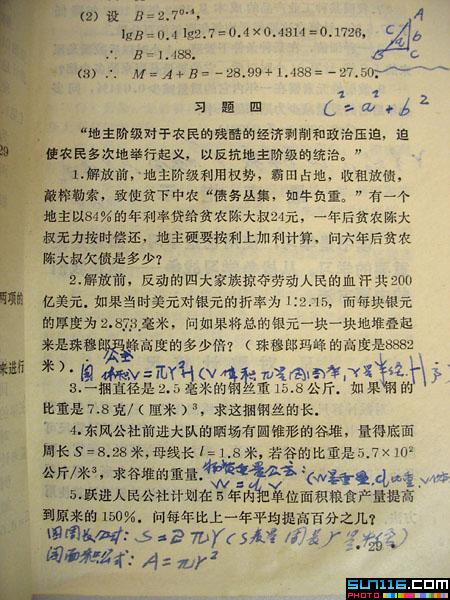 (2) 设 B=2.7^0.4,
lgB=0.4 lg2.7=0.4×0.4314=0.1726,
∴ B=1.488.
(3) ∴ M=A+B=-28.99+1.488=-27.50.
A
C
b
a
B
C
习题四
C²=a²+b²
“地主阶级对于农民的残酷的经济剥削和政治压迫，迫
使农民多次地举行起义，以反抗地主阶级的统治。”
29
1.解放前，地主阶级利用权势，霸田占地，收租放债，
敲榨勒索，致使贫下中农“债务丛集，如牛负重。”有一个
地主以84%的年利率贷给贫农陈大叔24元，一年后贫农陈大
叔无力按时偿还，地主硬要按利上加利计算，问六年后贫农
陈大叔欠债是多少？
2.解放前，反动的四大家族掠夺劳动人民的血汗共200
亿美元。如果当时美元对银元的折率为1:2.15，而每块银元
两项的
的厚度为2.873毫米，问如果将总的银元一块一块地堆叠起
来是珠穆郎玛峰高度的多少倍？（珠穆郎玛峰的高度是8882
来进行
米）.
公式
V=πr²H (V体积 π是圆周率, r是半径 H高
3.一捆直径是2.5毫米的钢丝重15.8公斤．如果钢的
比重是7.8克/(厘米)³，求这捆钢丝的长．
4.东风公社前进大队的晒场有圆锥形的谷堆，量得底面
周长S=8.28米，母线长l=1.8米，若谷的比重是5.7×10²
公斤/米³，求谷堆的重量．
物资重量公式:
W=dv
(W是重量, d比重, V体积
5.跃进人民公社计划在5年内把单位面积粮食产量提高
到原来的150%．问每年比上一年平均提高百分之几？
圆周长公式: S=2πr (S表是周长 r是半径)
·29·
圆面积公式: A=πr²
SUN116.COM
PHOTO